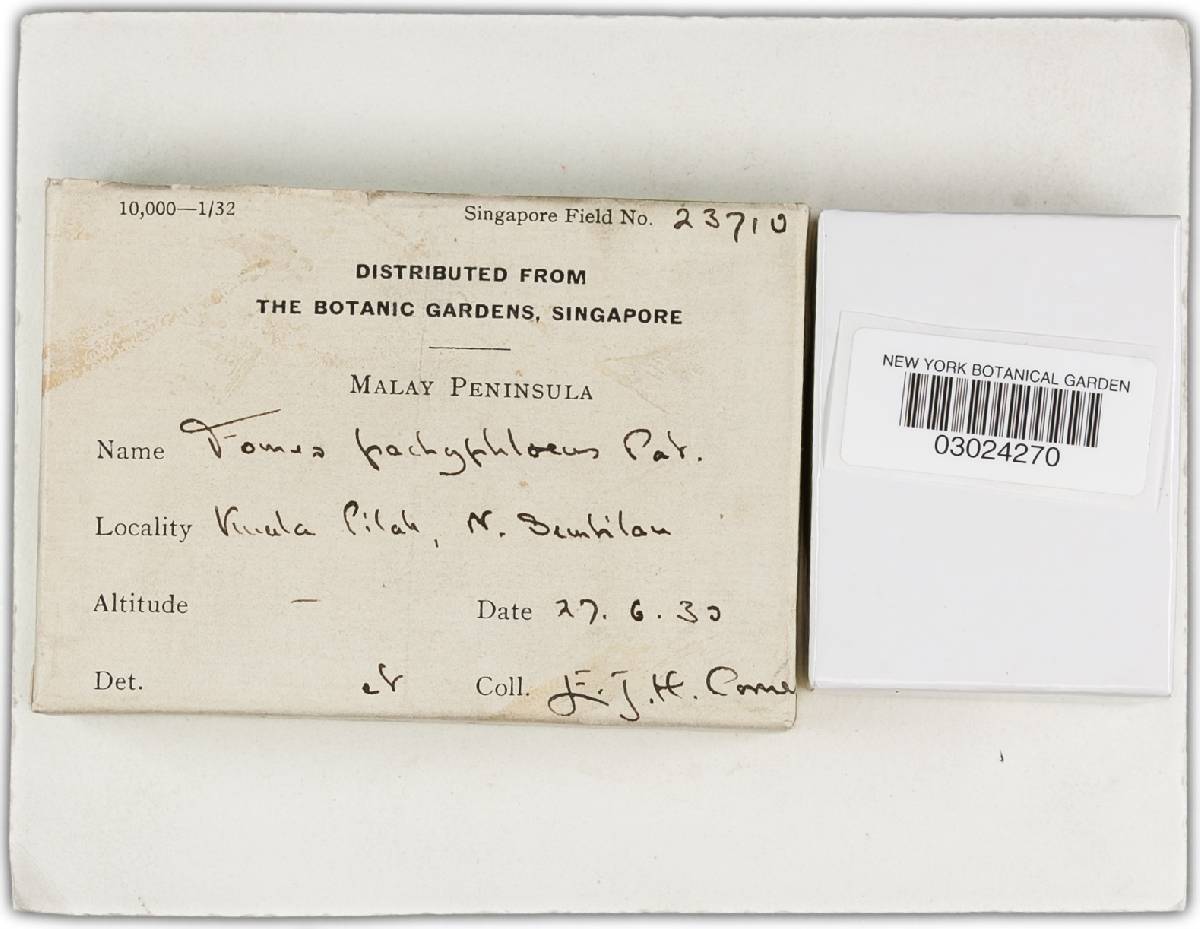 10,000—1/32
Singapore Field No. 23710
DISTRIBUTED FROM
THE BOTANIC GARDENS, SINGAPORE
MALAY PENINSULA
Name Fomes pachyphloeus Pat.
Locality Kuala Pilah, N. Sembilan
Altitude —
Date 27. 6. 30
Det. et
Coll. E. J. H. Corner
NEW YORK BOTANICAL GARDEN
03024270